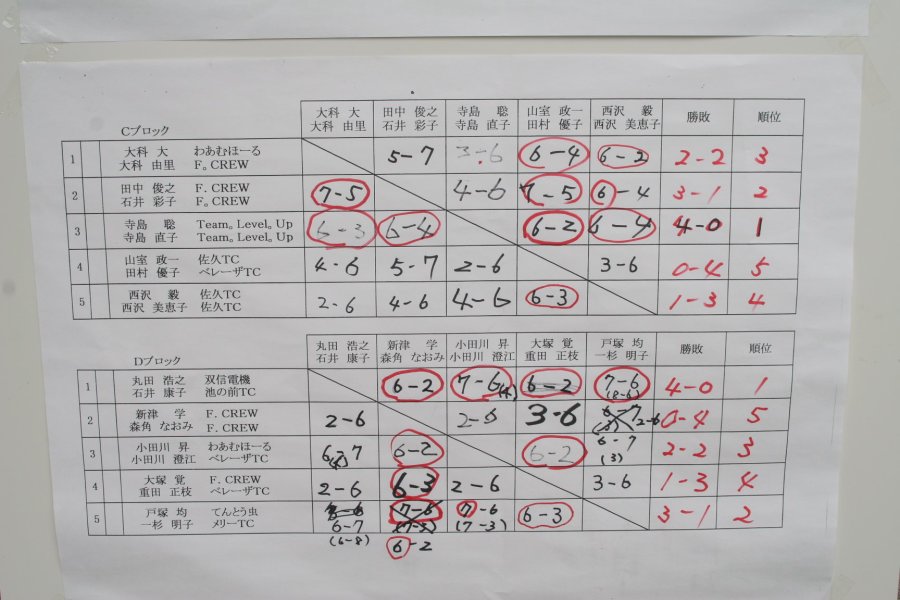 Cブロック 大科 大 田中 俊之 寺島 聡 山室 政一 西沢 毅 勝敗 順位
大科 由里 石井 彩子 寺島 直子 田村 優子 西沢 美恵子
1 大科 大 わあむほーる 5-7 3-6 6-4 6-2 2-2 3
大科 由里 F。CREW
2 田中 俊之 F. CREW 7-5 4-6 7-5 6-4 3-1 2
石井 彩子 F. CREW
3 寺島 聡 Team。Level。Up 6-3 6-4 6-2 6-4 4-0 1
寺島 直子 Team。Level。Up
4 山室 政一 佐久TC 4-6 5-7 2-6 3-6 0-4 5
田村 優子 ベレーザTC
5 西沢 毅 佐久TC 2-6 4-6 4-6 6-3 1-3 4
西沢 美恵子 佐久TC
Dブロック 丸田 浩之 新津 学 小田川 昇 大塚 覚 戸塚 均 勝敗 順位
石井 康子 森角 なおみ 小田川 澄江 重田 正枝 一杉 明子
1 丸田 浩之 双信電機 6-2 7-6 6-2 7-6 4-0 1
石井 康子 池の前TC (4) (8-6)
2 新津 学 F. CREW 2-6 2-6 3-6 6-7 2-6 0-4 5
森角 なおみ F. CREW (3)
3 小田川 昇 わあむほーる 6-7 6-2 6-2 6-7 2-2 3
小田川 澄江 ベレーザTC (4) (3)
4 大塚 覚 F. CREW 2-6 6-3 2-6 3-6 1-3 4
重田 正枝 ベレーザTC
5 戸塚 均 てんとう虫 7-6 7-6 6-3 3-1 2
一杉 明子 メリーTC 6-7 (7-3) (7-3)
(6-8) 6-2